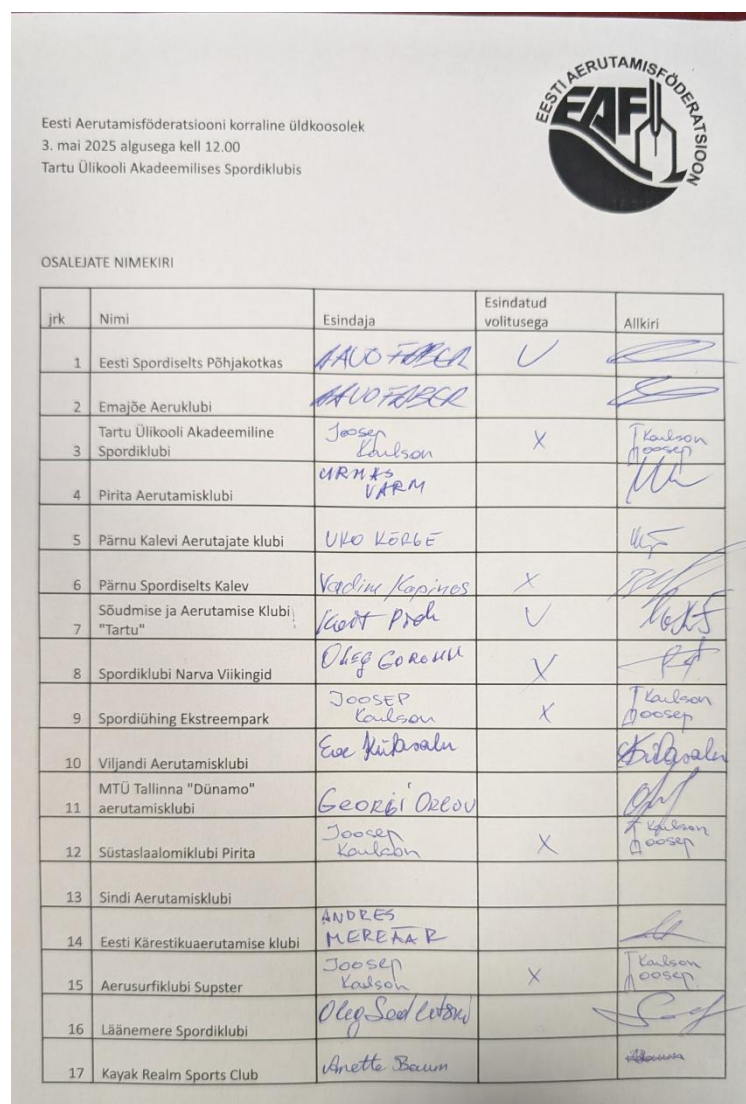 EESTI AERUTAMISFÖDERATSIOON
EAF
Eesti Aerutamisföderatsiooni korraline üldkoosolek
3. mai 2025 algusega kell 12.00
Tartu Ülikooli Akadeemilises Spordiklubis
OSALEJATE NIMEKIRI
jrk Nimi Esindaja Esindatud volitusega Allkiri
1 Eesti Spordiselts Põhjakotkas AAVO FABER V
2 Emajõe Aeruklubi AAVO FABER
3 Tartu Ülikooli Akadeemiline Spordiklubi Joosep Karlson X Karlson Joosep
4 Pirita Aerutamisklubi URMAS VARM
5 Pärnu Kalevi Aerutajate klubi UKO KÕRGE
6 Pärnu Spordiselts Kalev Vadim Kapinos X
7 Sõudmise ja Aerutamise Klubi "Tartu" V
8 Spordiklubi Narva Viikingid Oleg V
9 Spordiühing Ekstreempark JOOSEP Karlson X Karlson Joosep
10 Viljandi Aerutamisklubi Eve
11 MTÜ Tallinna "Dünamo" aerutamisklubi GEORGI ORLOV
12 Süstaslaalomiklubi Pirita Joosep Karlson X Karlson Joosep
13 Sindi Aerutamisklubi
14 Eesti Kärestikuaerutamise klubi ANDRES MEREÄÄR
15 Aerusurfiklubi Supster Joosep Karlson X Karlson Joosep
16 Läänemere Spordiklubi Oleg
17 Kayak Realm Sports Club Anette Baum